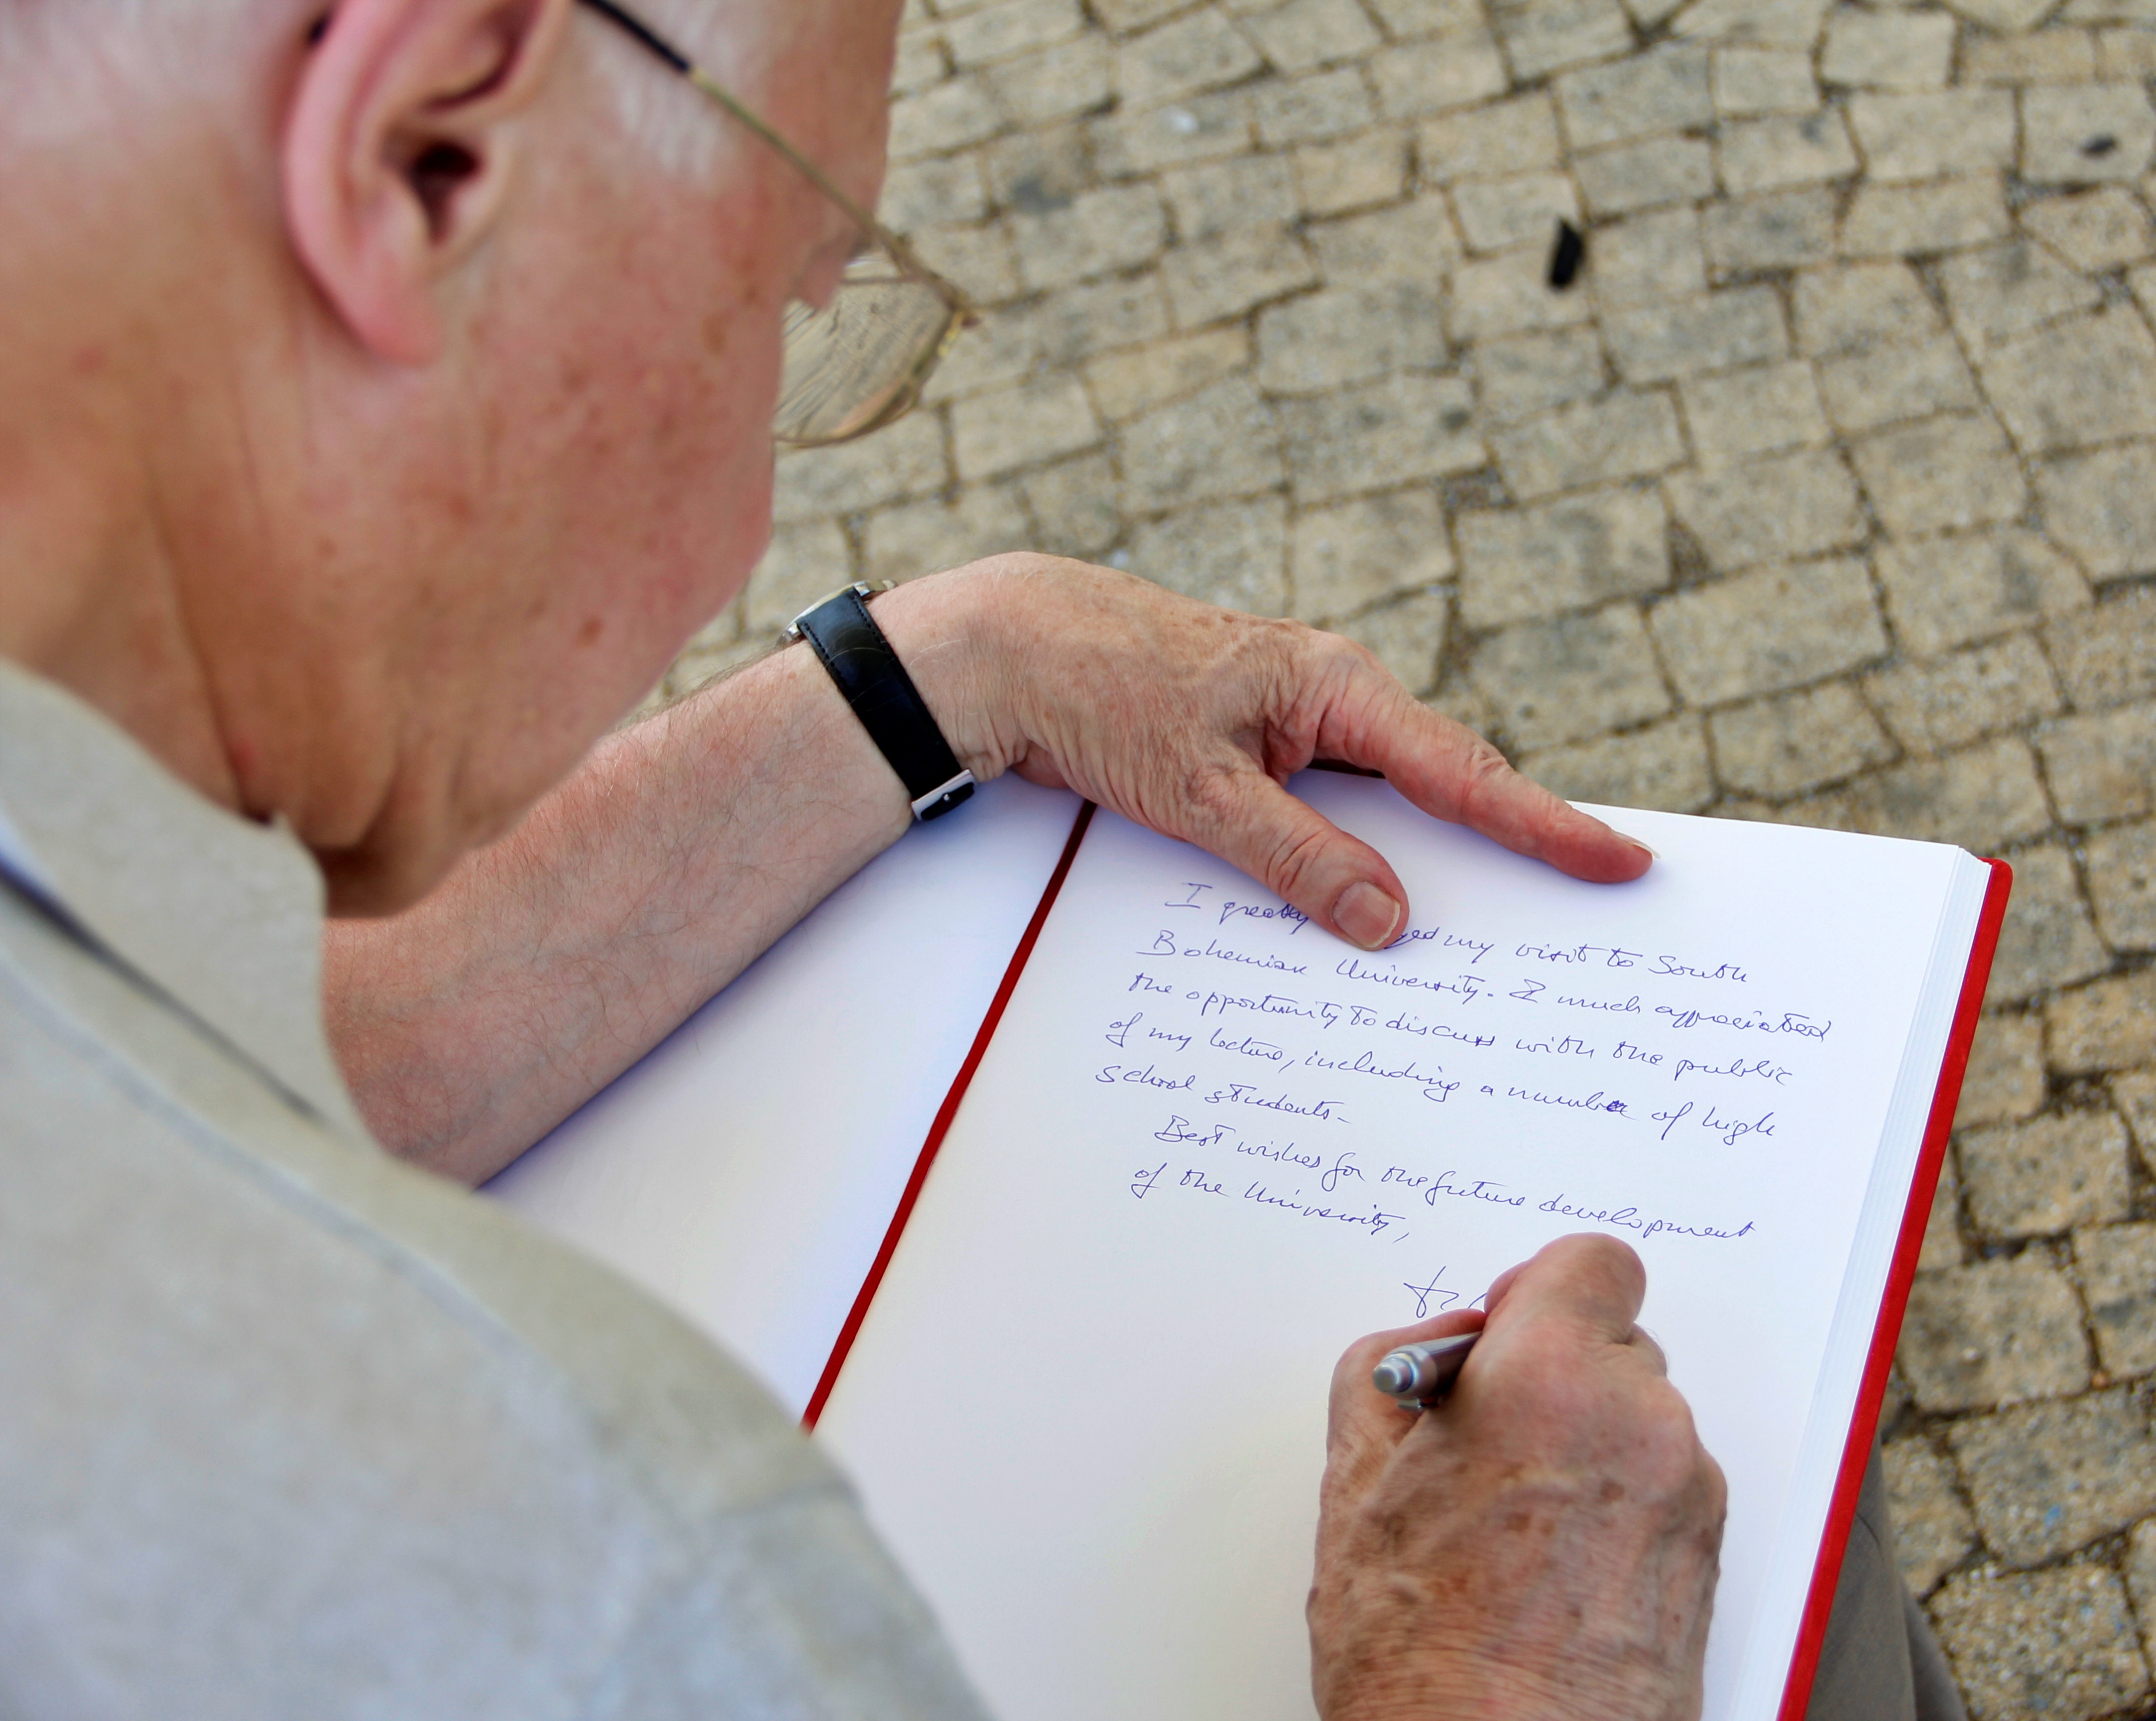 I greatly yed my visit to South
Bohemian University. I much appreciated
the opportunity to discuss with the public
of my lecture, including a number of high
school students.
Best wishes for the future development
of the University,